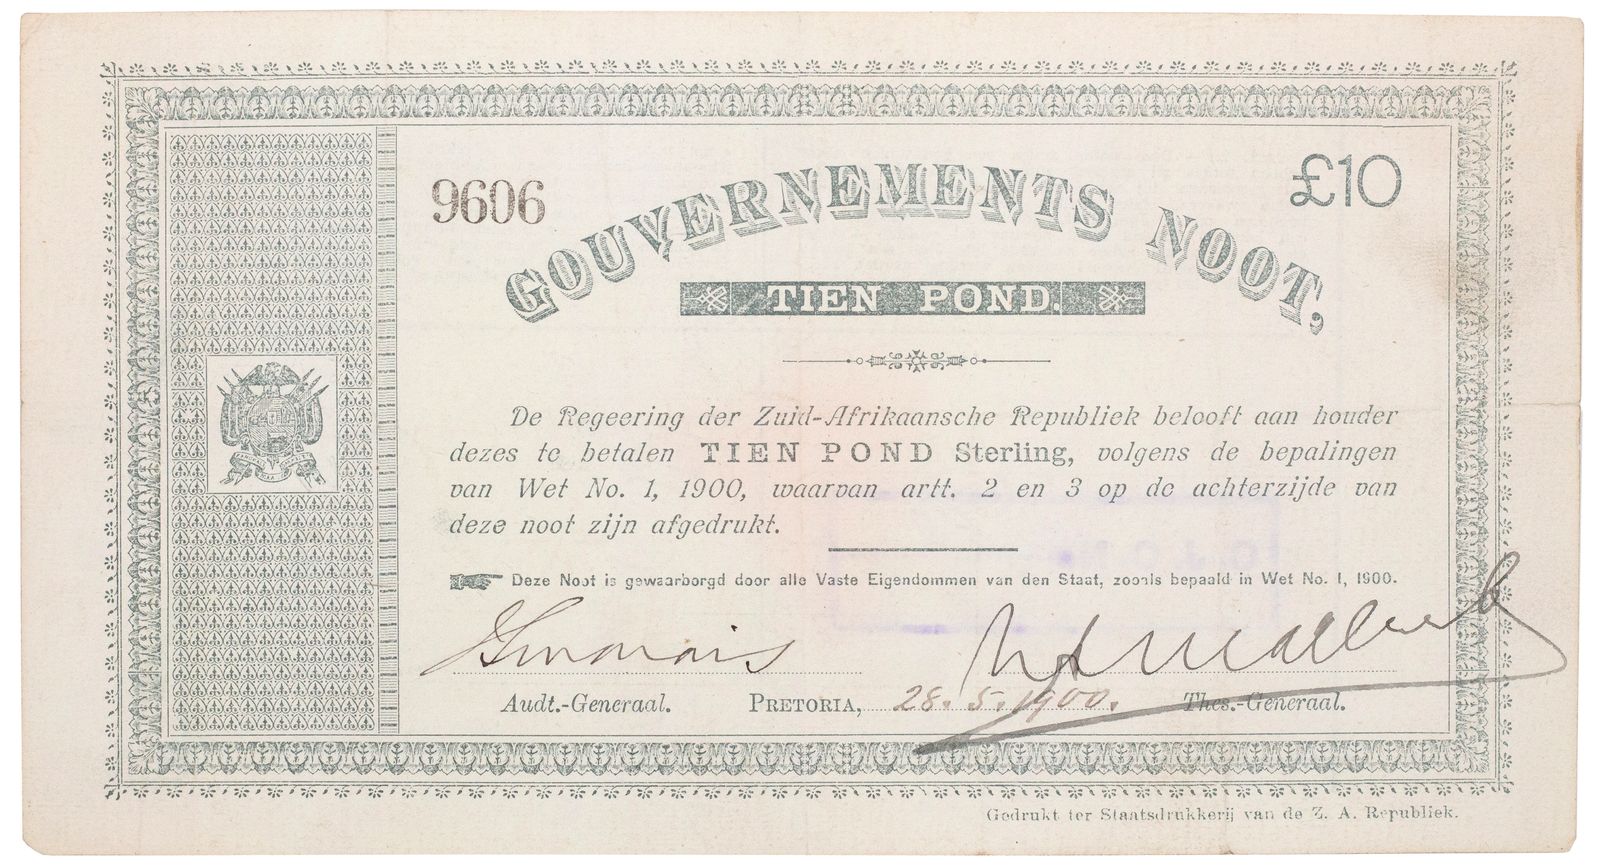 9606
£10
GOUVERNEMENTS NOOT,
TIEN POND.
De Regeering der Zuid-Afrikaansche Republiek belooft aan houder
dezes te betalen TIEN POND Sterling, volgens de bepalingen
van Wet No. 1, 1900, waarvan artt. 2 en 3 op de achterzijde van
deze noot zijn afgedrukt.
Deze Noot is gewaarborgd door alle Vaste Eigendommen van den Staat, zooals bepaald in Wet No. 1, 1900.
Audt.-Generaal. PRETORIA, 28.5.1900. Thes.-Generaal.
Gedrukt ter Staatsdrukkerij van de Z. A. Republiek.